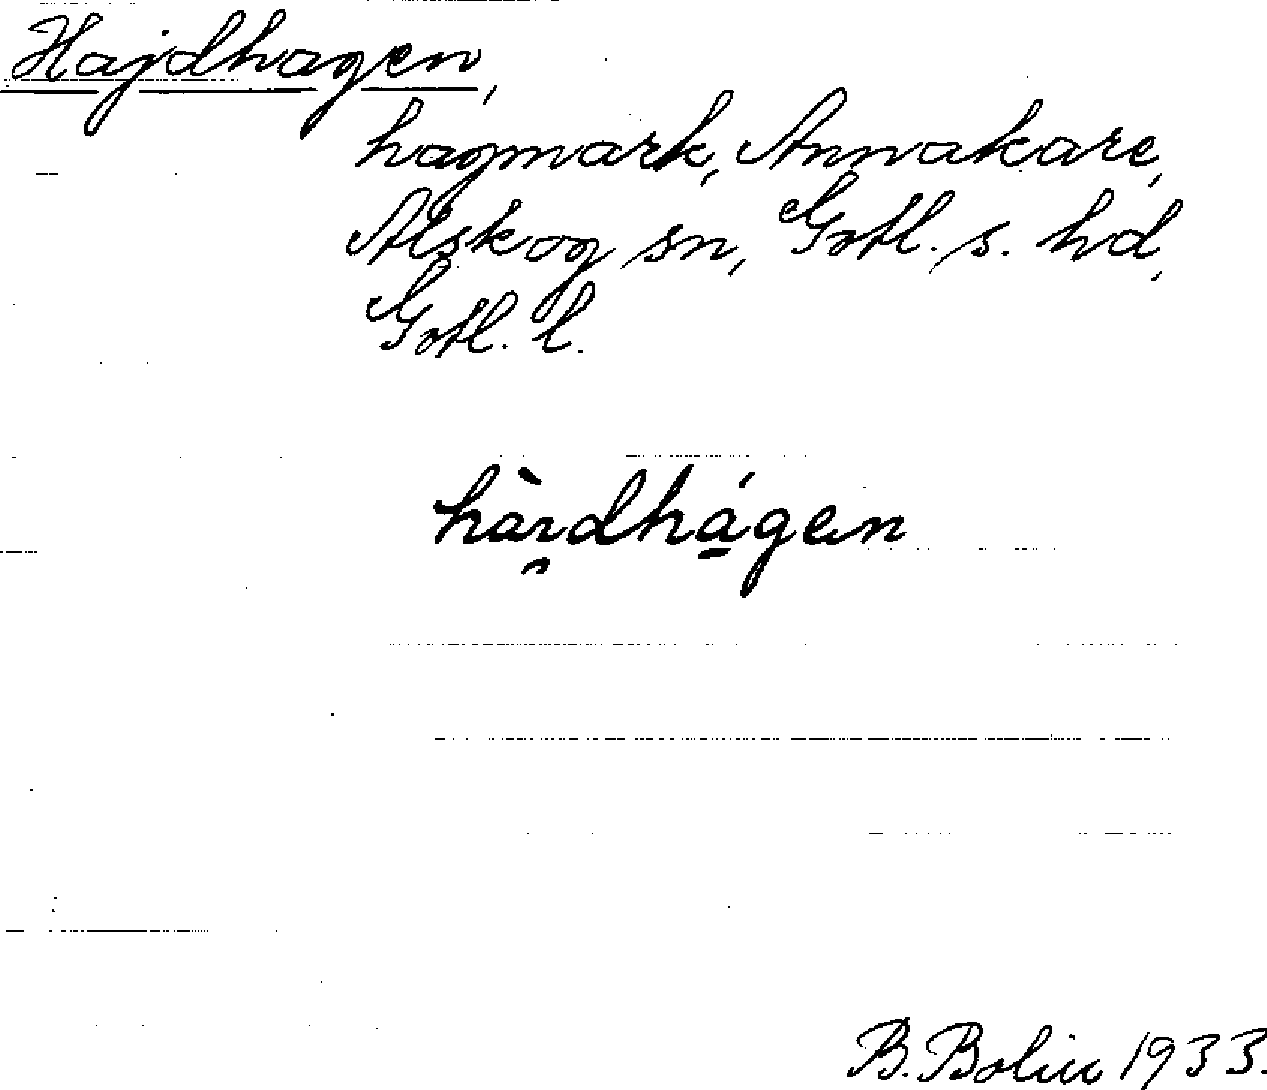 Hajdhagen,
hagmark, Annakare,
Alskog sn, Gotl. s. hd,
Gotl. l.
B. Bolin 1933.